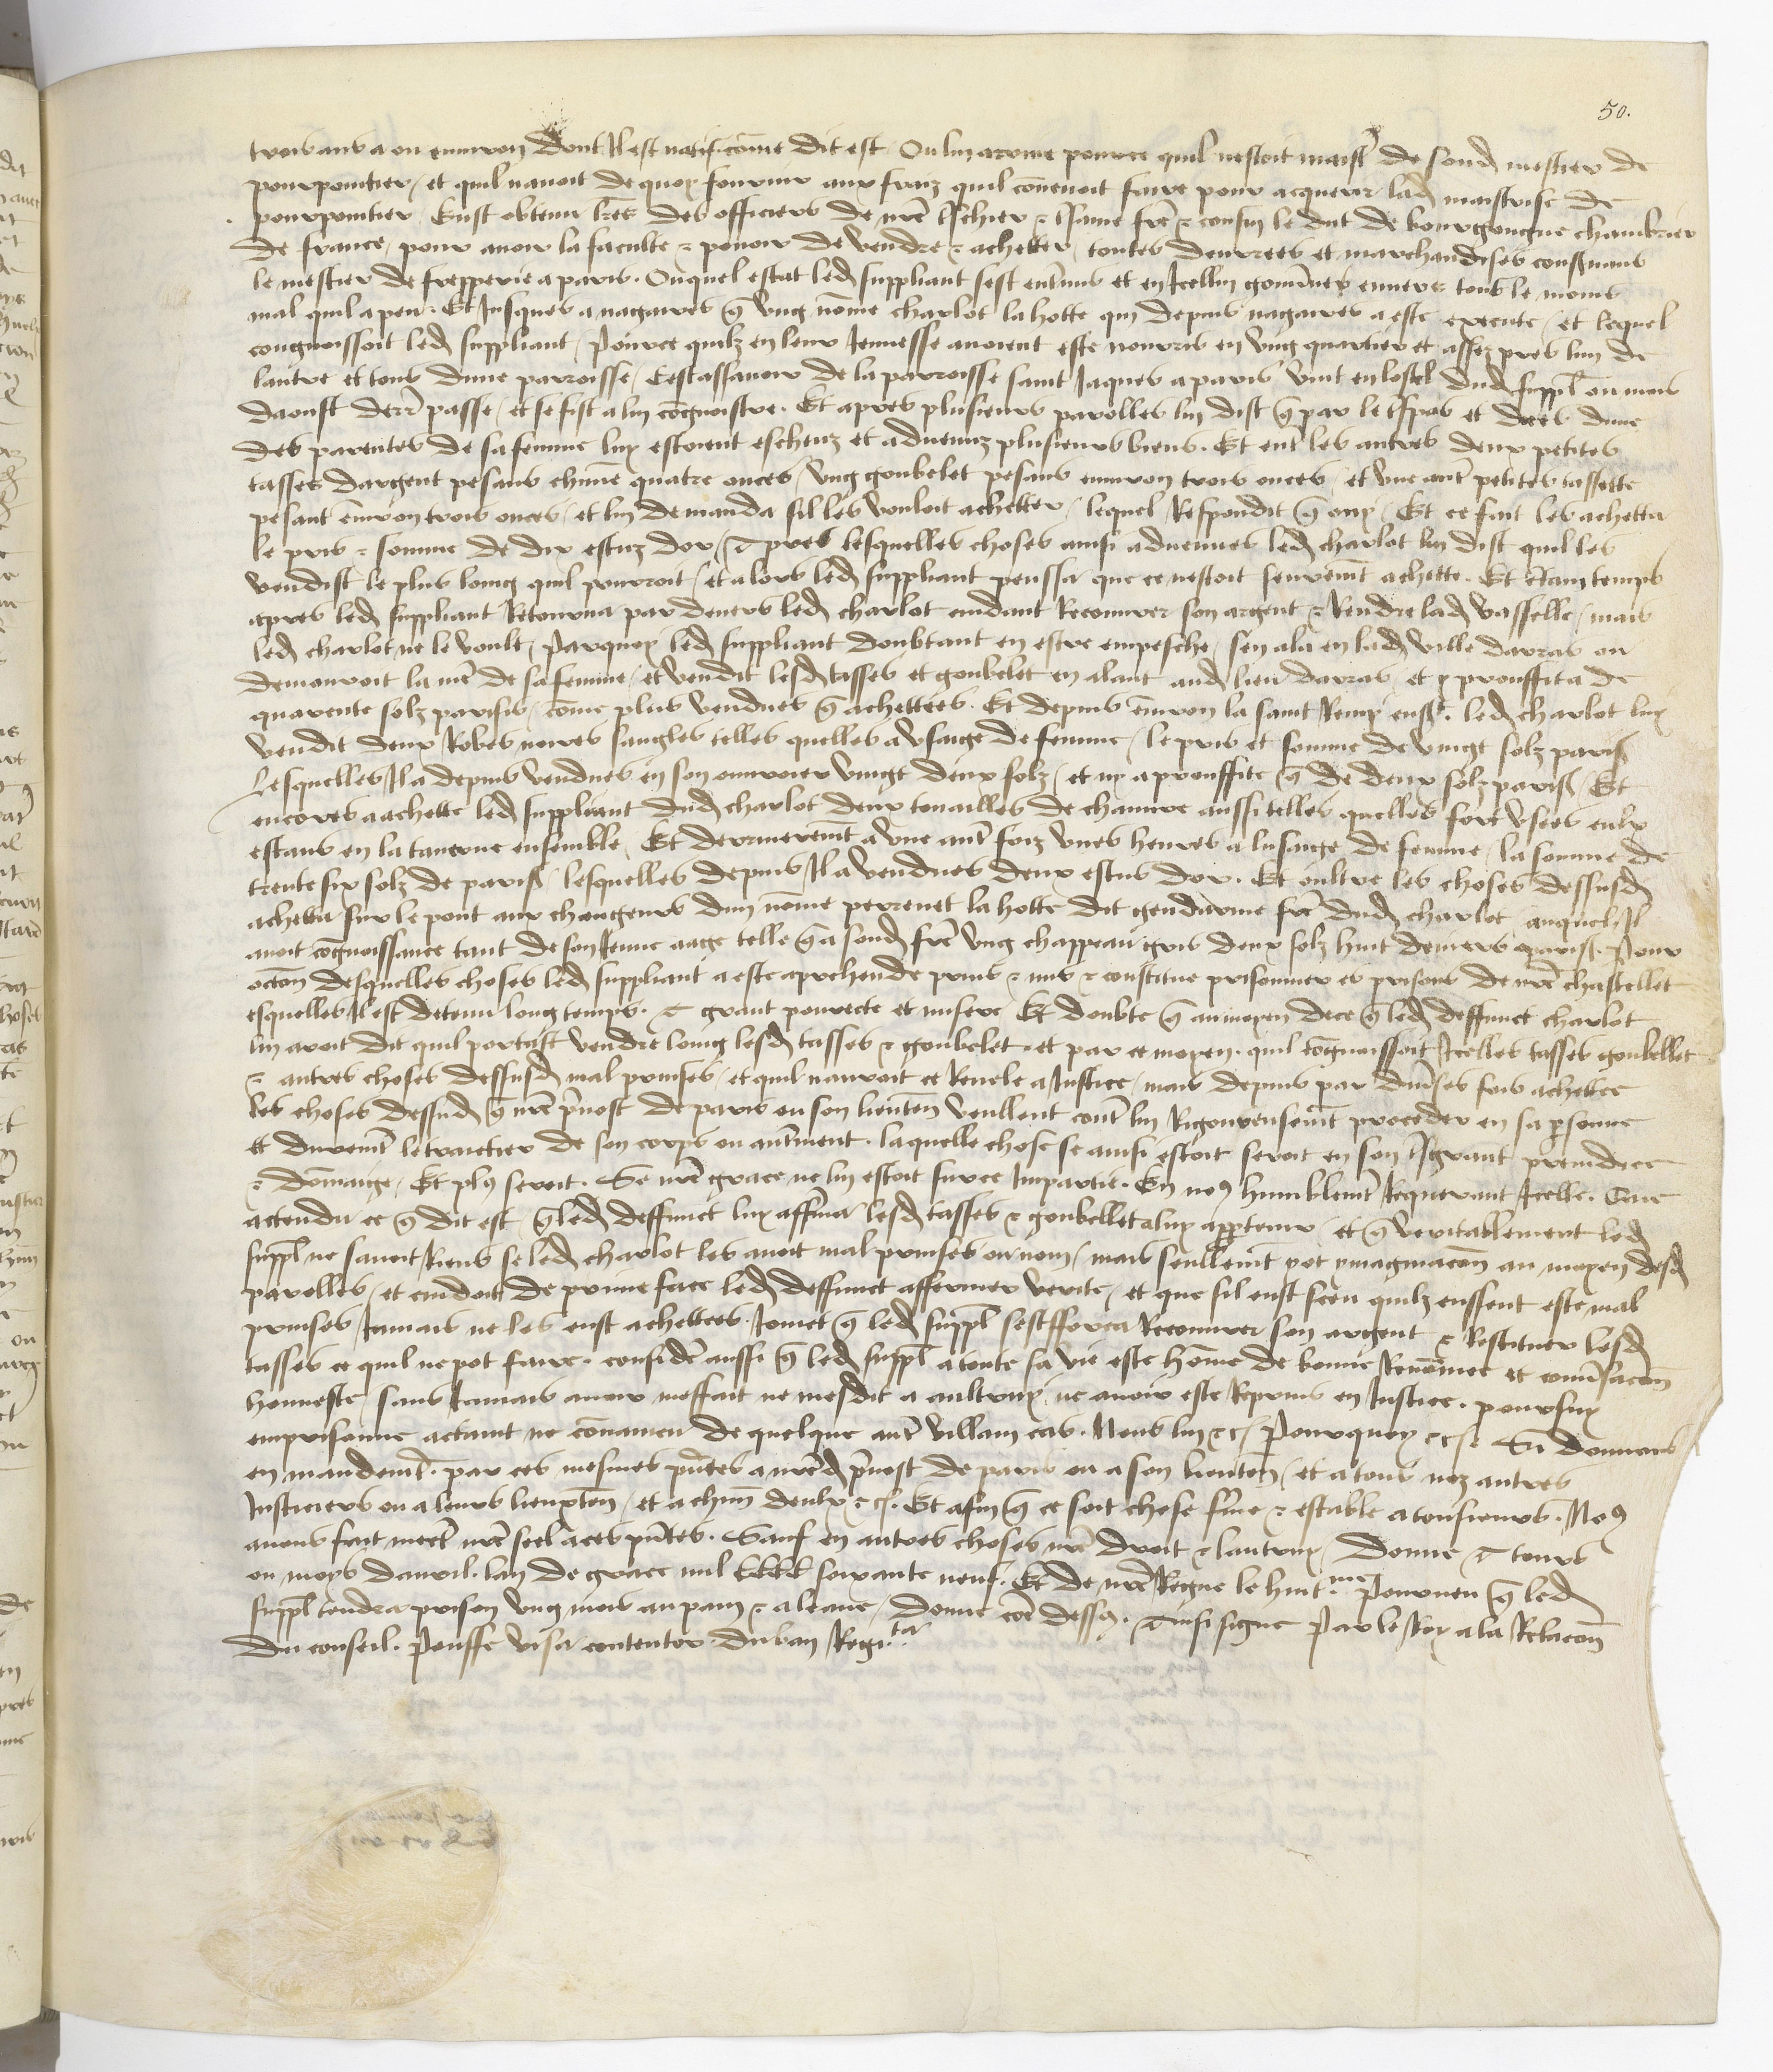 50.
trois ans a ou environ dont Il est natif come dit est Ou lui arrive pource quil nestoit maistre de sond mestier de
pourpointier / et quil navoit de quoy fournir aux fraiz quil convenoit faire pour acquerir lad maistrise de
pourpointier Eust obtenu lres des officiers de nre treschier & tsame frere & cousin le duc de bourgongne chambrier
de france / pour avoir la faculte & povoir de vendre & achetter / toutes denrrees et marchandises conscernans
le mestier de frepperie a paris . Ouquel estat led suppliant sest entremis et en Icellui gouverne envers tous le moins
mal quil a peu . Et Jusques a nagaires q ung nome charlot la hotte qui depuis nagaires a este execute / et lequel
congnoissoit led suppliant / Pource quilz en leur Jeunesse avoient este nourris en ung quartier et assez pres lun de
lautre et tous dune parroisse / Cestassavoir de la parroisse saint Jaques a paris vint en lostel dud suppl ou mois
daoust derr passe / et se fist a lui congnoistre . Et apres plusieurs parolles lui dist q par le tspas et deces dune
des parentes de sa femme luy estoient escheuz et advenuz plusieurs biens . Et entre les autres deux petites
tasses dargent pesans chune quatre onces / ung goubelet pesans environ trois onces / et une autre petites tassette
pesant environ trois onces / et lui demanda sil les vouloit achetter / lequel Respondit q ouy / Et ce fait les achetta
le pris & somme de dix escuz dor / Apres lesquelles choses ainsi advenues led charlot lui dist quil les
vendist le plus loing quil pourroit / et alors led suppliant penssa que ce nestoit seurement achette . Et certain temps
apres led suppliant Retourna par devers led charlot cuidant Recouvrer son argent & Rendre lad vasselle / mais
led charlot ne le voult / Parquoy led suppliant doubtant en estre empesche / sen ala en lad ville darras ou
demouroit la mere de sa femme / et vendit lesd tasses et goubelet en alant aud lieu darras / et y prouffita de
quarente solz parisis / come plus vendues q achettees . Et depuis environ la saint Remy ensuivant led charlot luy
vendit deux Robes noires sangles telles quelles a usaige de femme / le pris et somme de vingt solz paris
Lesquelles Il a depuis vendues en son ouvrouer vingt deux solz / et ny a prouffite q de deux solz paris / Et
encores a achette led suppliant dud charlot deux touailles de chanvre aussi telles quelles fort usees eulx
estans en la taverne ensemble / Et derrierement a une autre foiz unes heures a lusaige de femme / la somme de
trente six solz de paris / lesquelles depuis Il a vendues deux escus dor . Et oultre les choses dessusd
achetta sur le pont aux changeurs dun nome perrenet la hotte dit gendarme frere dud charlot / auquel Il
avoit congnoissance tant de son Jeune aage telle q a sond frere ung chappeau gris deux solz huit deniers paris . Pour
occon desquelles choses led suppliant a este aprehende prins & mis & constitue prisonnier es prisons de nre chastellet
esquelles Il est detenu long temps . A grant povrecte et misere Et doubte q au moyen de ce q led deffunct charlot
lui avoit dit quil portast vendre loing lesd tasses & goubelet . et par ce moyen . quil congnoissoit Icelles tasses goubellet
& autres choses dessusd mal prinses / et quil nauroit ce Revele a Justice / mais depuis par diverses fois achette
les choses dessusd q nre prevost de paris ou son lieuten veullent contre lui Rigoureusement proceder en sa personne
et durement le traictier de son corps ou autrement . laquelle chose se ainsi estoit seroit en son tsgrant preiudice
& dommaige / Et plus seroit . Se nre grace ne lui estoit sur ce Impartie . En nous humblement Requerant Icelle . Que
actendu ce q dit est / q led deffunct luy afferma lesd tasses & goubellet a luy appartenir / et q veritablement led
suppl ne savoit Riens se led charlot les avoit mal prinses ou non / mais seullement yot ymaginacion au moyen desd
parolles / et cuidoit de prime face led deffunct affermer verite / et que sil eust sceu quilz eussent este mal
prinses Jamais ne les eust achettees . Joinct q led suppl sest efforca Recouvrer son argent & Restituer lesd
tasses ce quil ne pot faire . considere aussi q led suppl a toute sa vie este home de bonne Renomee et conversacion
honneste / sans Jamais avoir meffait ne mesdit a aultruy / ne avoir este Reprins en Justice . poursuy
emprisonne actaint ne convaincu de quelque autre villain cas . Nous lui &c Pourquoy &c Si donnons
en mandement . par ces mesmes presentes a nred prevost de paris ou a son lieuten / et a tous noz autres
Justiciers ou a leurs lieuxten / et a chun deulx &c . Et afin q ce soit chose ferme & estable a tousiours . Nous
avons fait mectre nre seel a ces presentes . Sauf en autres choses nre droit & lautruy / Donne A tours
ou moys davril . lan de grace mil cccc soixante neuf . Et de nre Regne le huitme Pourveu q led
suppl tendra prison ung mois au pain & a leaue / Donne come dessus . Ainsi signe Par le Roy a la Relacion
du conseil . Pousse visa contentor . duban Regta